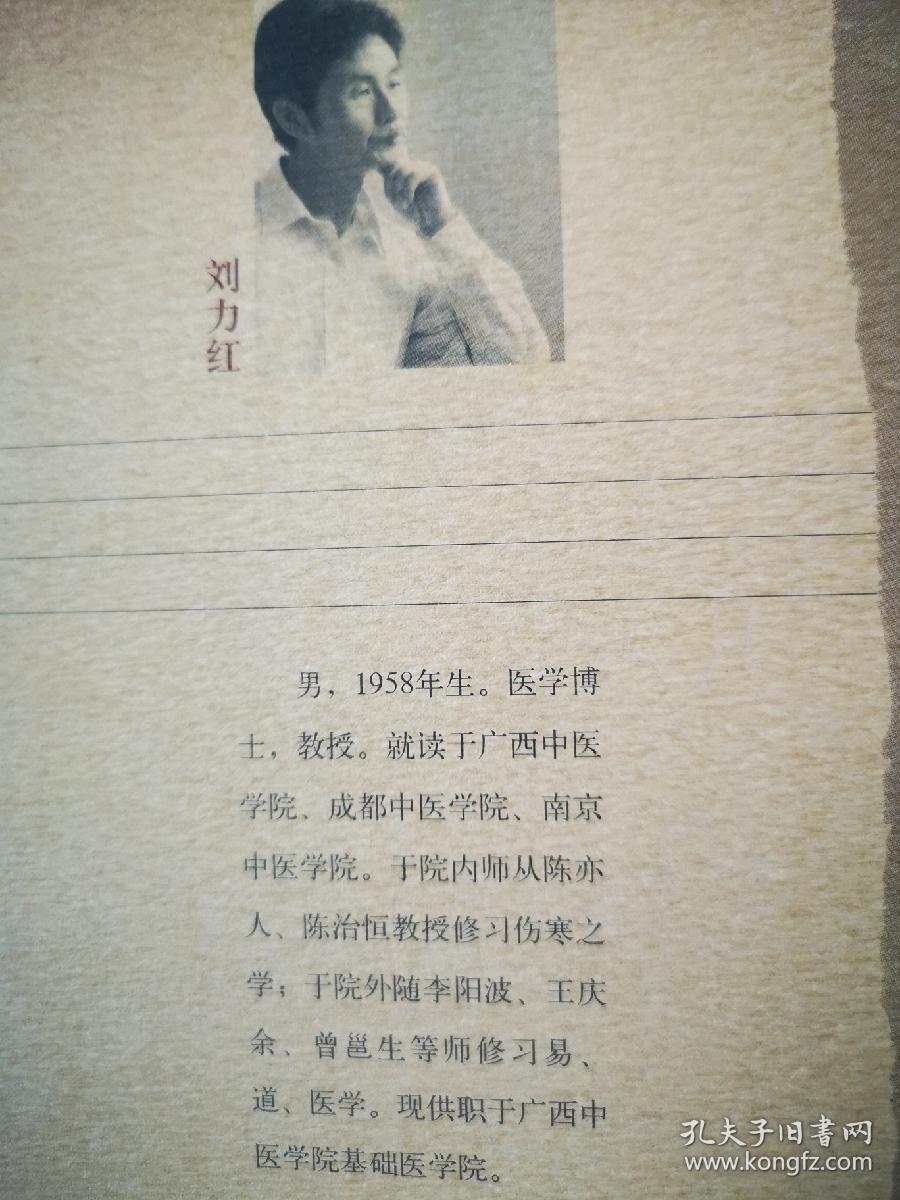 刘力红
男，1958年生。医学博
士，教授。就读于广西中医
学院、成都中医学院、南京
中医学院。于院内师从陈亦
人、陈治恒教授修习伤寒之
学；于院外随李阳波、王庆
余、曾邕生等师修习易、
道、医学。现供职于广西中
医学院基础医学院。
孔夫子旧书网
www.kongfz.com